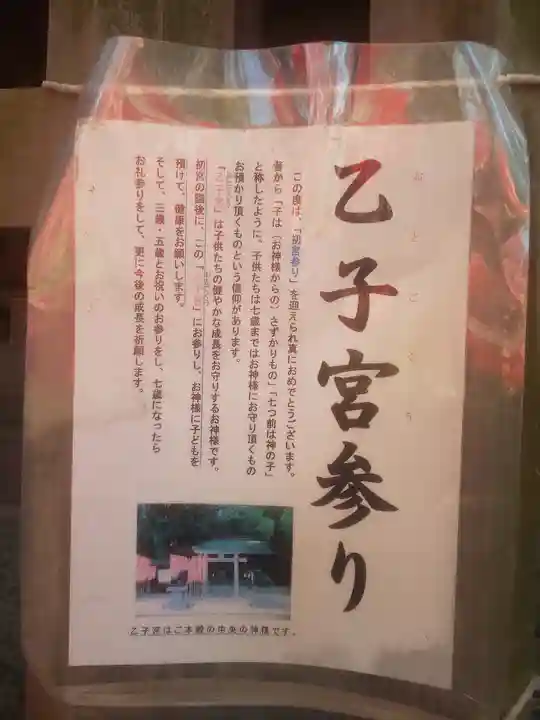 乙子宮参り
この度は、「初宮参り」を迎えられ真におめでとうございます。
昔から「子は（お神様からの）さずかりもの」「七つ前は神の子」
と称したように、子供たちは七歳まではお神様にお守り頂くもの
お預かり頂くものという信仰があります。
「乙子宮」は子供たちの健やかな成長をお守りするお神様です。
初宮の詣後に、この「」にお参りし、お神様に子どもを
預けて、健康をお願いします。
そして、三歳・五歳とお祝いのお参りをし、七歳になったら
お礼参りをして、更に今後の成長を祈願します。
乙子宮はご本殿の中央の神様です。